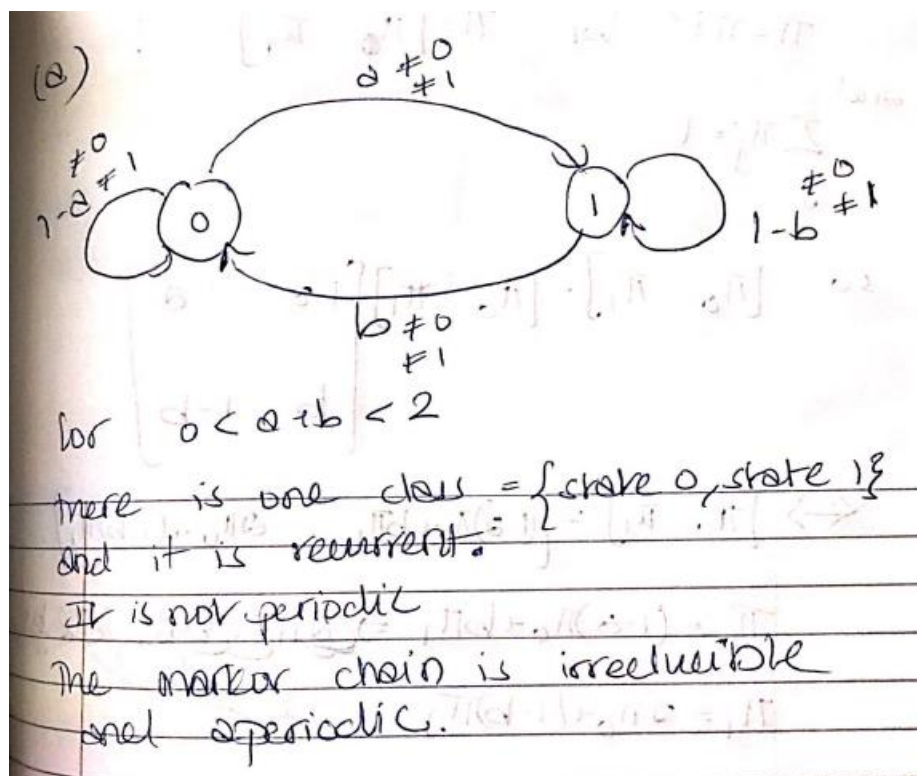 (a)
a ≠0
≠1
≠0
1-a ≠1
0
1
≠0
1-b ≠1
b ≠0
≠1
for 0 < a+b < 2
there is one class = {state 0, state 1}
and it is recurrent.
It is not periodic
The markov chain is irreducible
and aperiodic.